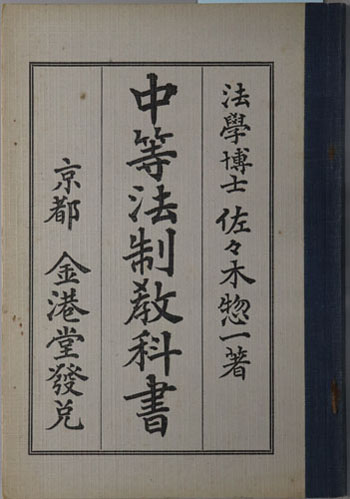 法學博士 佐々木惣一著
中等法制教科書
京都 金港堂發兌